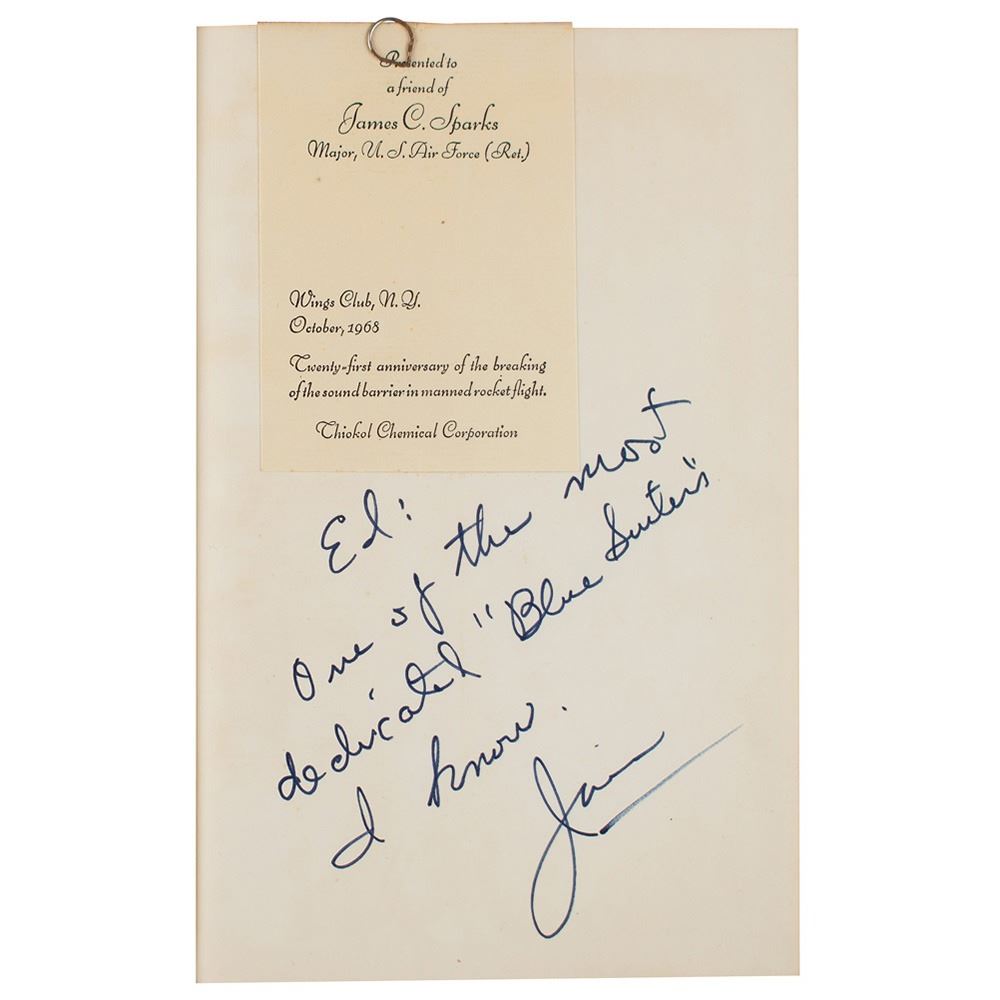 Presented to
a friend of
James C. Sparks
Major, U. S. Air Force (Ret.)
Wings Club, N. Y.
October, 1968
Twenty-first anniversary of the breaking
of the sound barrier in manned rocket flight.
Thiokol Chemical Corporation
Ed:
One of the most
dedicated "Blue Suiters"
I know.
Jim